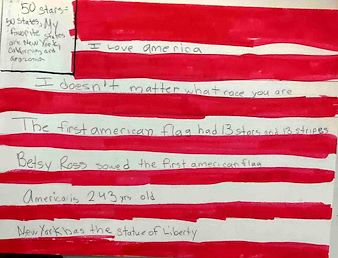 50 stars=
50 states, My
favorite states
are New York,
California and
arizona
I Love america
I doesn't matter what race you are
The first american flag had 13 stars and 13 stripes
Betsy Ross sowed the first american flag
America is 243 yrs old
New York has the statue of Liberty